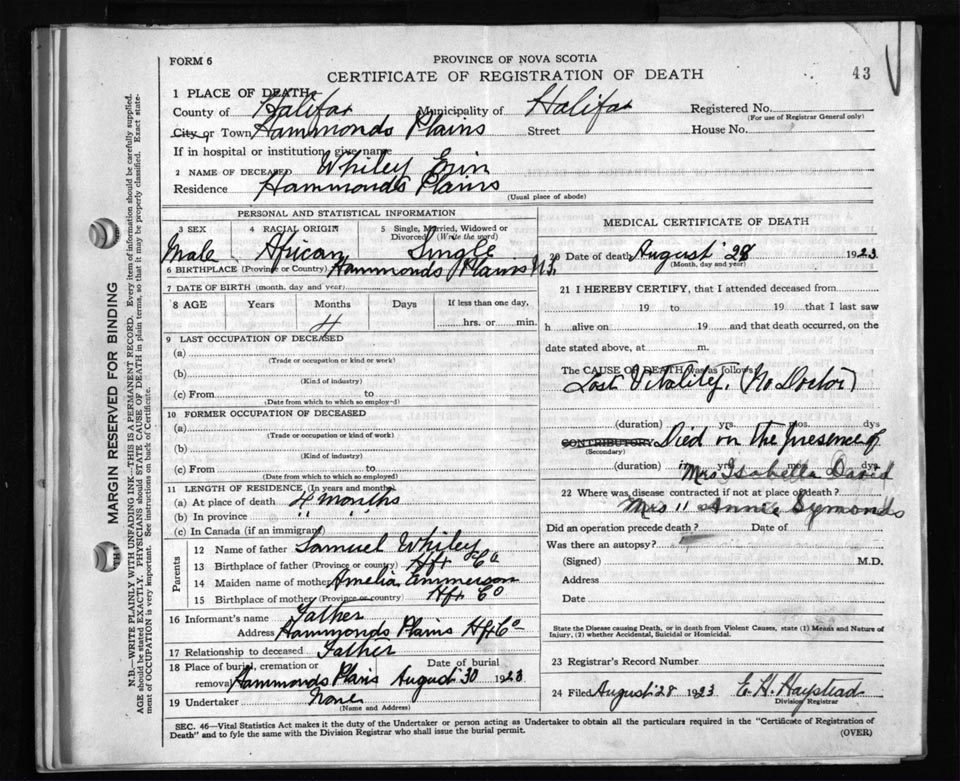 FORM 6
PROVINCE OF NOVA SCOTIA
CERTIFICATE OF REGISTRATION OF DEATH
43
1 PLACE OF DEATH
County of Halifax Municipality of Halifax Registered No.
(For use of Registrar General only)
City or Town Hammonds Plains Street House No.
If in hospital or institution, give name
2 NAME OF DECEASED Whiley Erin
Residence Hammonds Plains
(Usual place of abode)
PERSONAL AND STATISTICAL INFORMATION
3 SEX 4 RACIAL ORIGIN 5 Single, Married, Widowed or Divorced (Write the word)
Male African Single
6 BIRTHPLACE (Province or Country) Hammonds Plains N.S.
7 DATE OF BIRTH (month, day and year)
8 AGE Years Months Days If less than one day,
4 hrs. or min.
9 LAST OCCUPATION OF DECEASED
(a)
(Trade or occupation or kind or work)
(b)
(Kind of industry)
(c) From to
(Date from which to which so employ-d)
10 FORMER OCCUPATION OF DECEASED
(a)
(Trade or occupation or kind of work)
(b)
(Kind of industry)
(c) From to
(Date from which to which so employed)
11 LENGTH OF RESIDENCE (In years and months)
(a) At place of death 4 months
(b) In province " "
(c) In Canada (if an immigrant)
Parents
12 Name of father Samuel Whiley
13 Birthplace of father (Province or country) Hfx Co
14 Maiden name of mother Amelia Emmerson
15 Birthplace of mother (Province or country) Hfx Co
16 Informant's name Father
Address Hammonds Plains Hfx Co
17 Relationship to deceased Father
18 Place of burial, cremation or Date of burial
removal Hammonds Plains August 30 1923
19 Undertaker None
(Name and Address)
MEDICAL CERTIFICATE OF DEATH
20 Date of death August 28 1923
(Month, day and year)
21 I HEREBY CERTIFY, that I attended deceased from
19 to 19 that I last saw
h alive on 19 and that death occurred, on the
date stated above, at m.
The CAUSE OF DEATH was as follows:
Lost Vitality. (No Doctor)
(duration) yrs. mos. dys
CONTRIBUTORY Died on the presence of
(Secondary)
(duration) yrs. mos. dys.
Mrs Isabella David
22 Where was disease contracted if not at place of death?
Mrs " Annie Symonds
Did an operation precede death? Date of
Was there an autopsy?
(Signed) M.D.
Address
Date
State the Disease causing Death, or in death from Violent Causes, state (1) Means and Nature of
Injury, (2) whether Accidental, Suicidal or Homicidal.
23 Registrar's Record Number
24 Filed August 28 1923 E. H. Haystead
Division Registrar
SEC. 46—Vital Statistics Act makes it the duty of the Undertaker or person acting as Undertaker to obtain all the particulars required in the "Certificate of Registration of
Death" and to fyle the same with the Division Registrar who shall issue the burial permit.
(OVER)
MARGIN RESERVED FOR BINDING
N.B.—WRITE PLAINLY WITH UNFADING INK—THIS IS A PERMANENT RECORD. Every item of information should be carefully supplied.
AGE should be stated EXACTLY. PHYSICIANS should STATE CAUSE OF DEATH in plain terms, so that it may be properly classified. Exact state-
ment of OCCUPATION is very important. See instructions on back of Certificate.